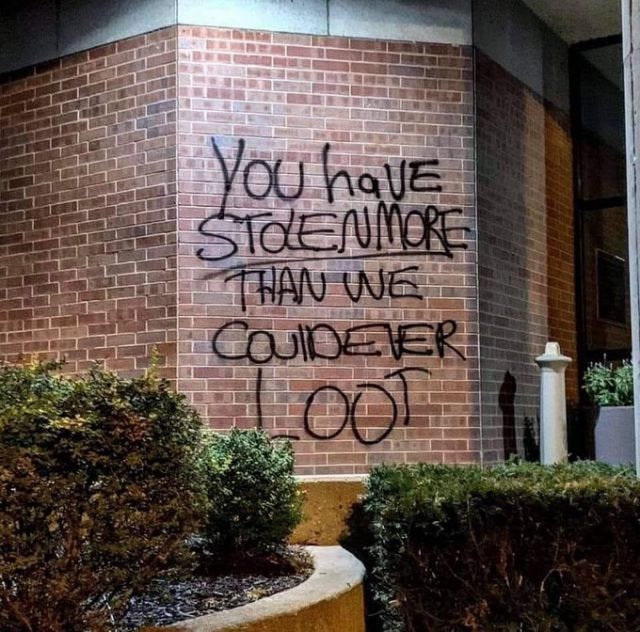 You have
STOLEN MORE
THAN WE
COULD EVER
LOOT